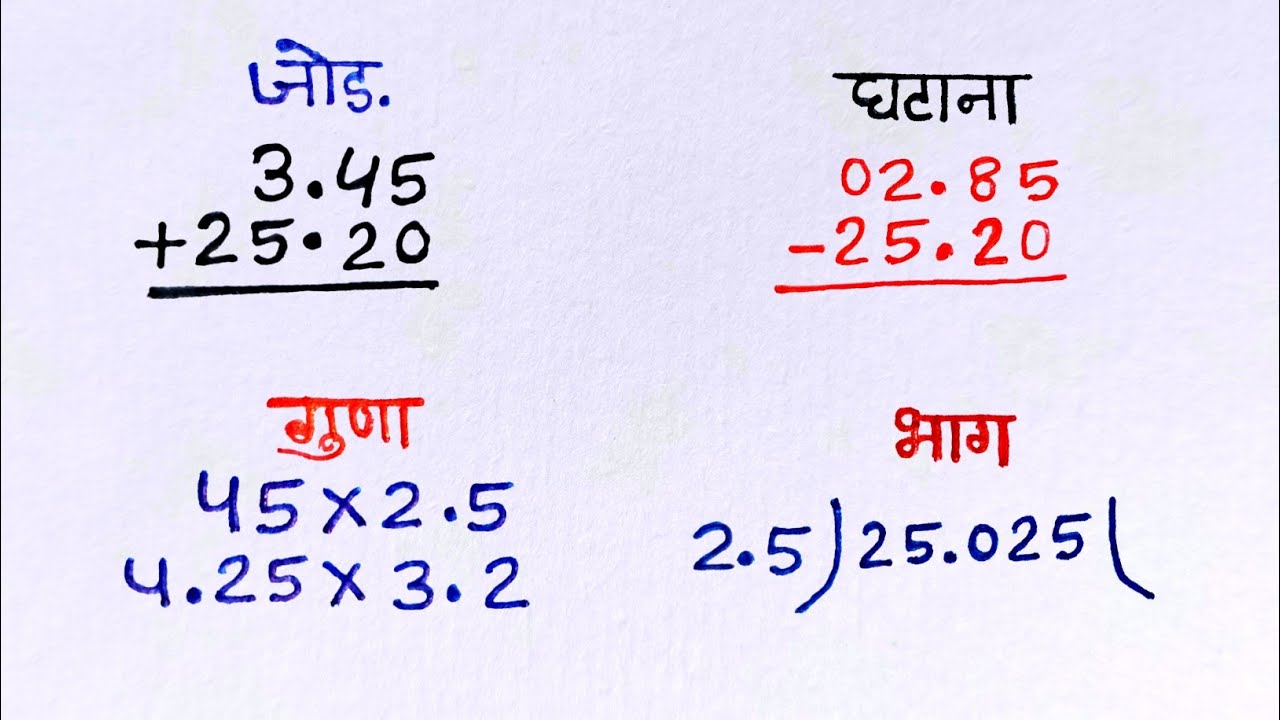 जोड.
3.45
+25.20
घटाना
02.85
-25.20
गुणा
45x2.5
4.25x3.2
भाग
2.5)25.025(